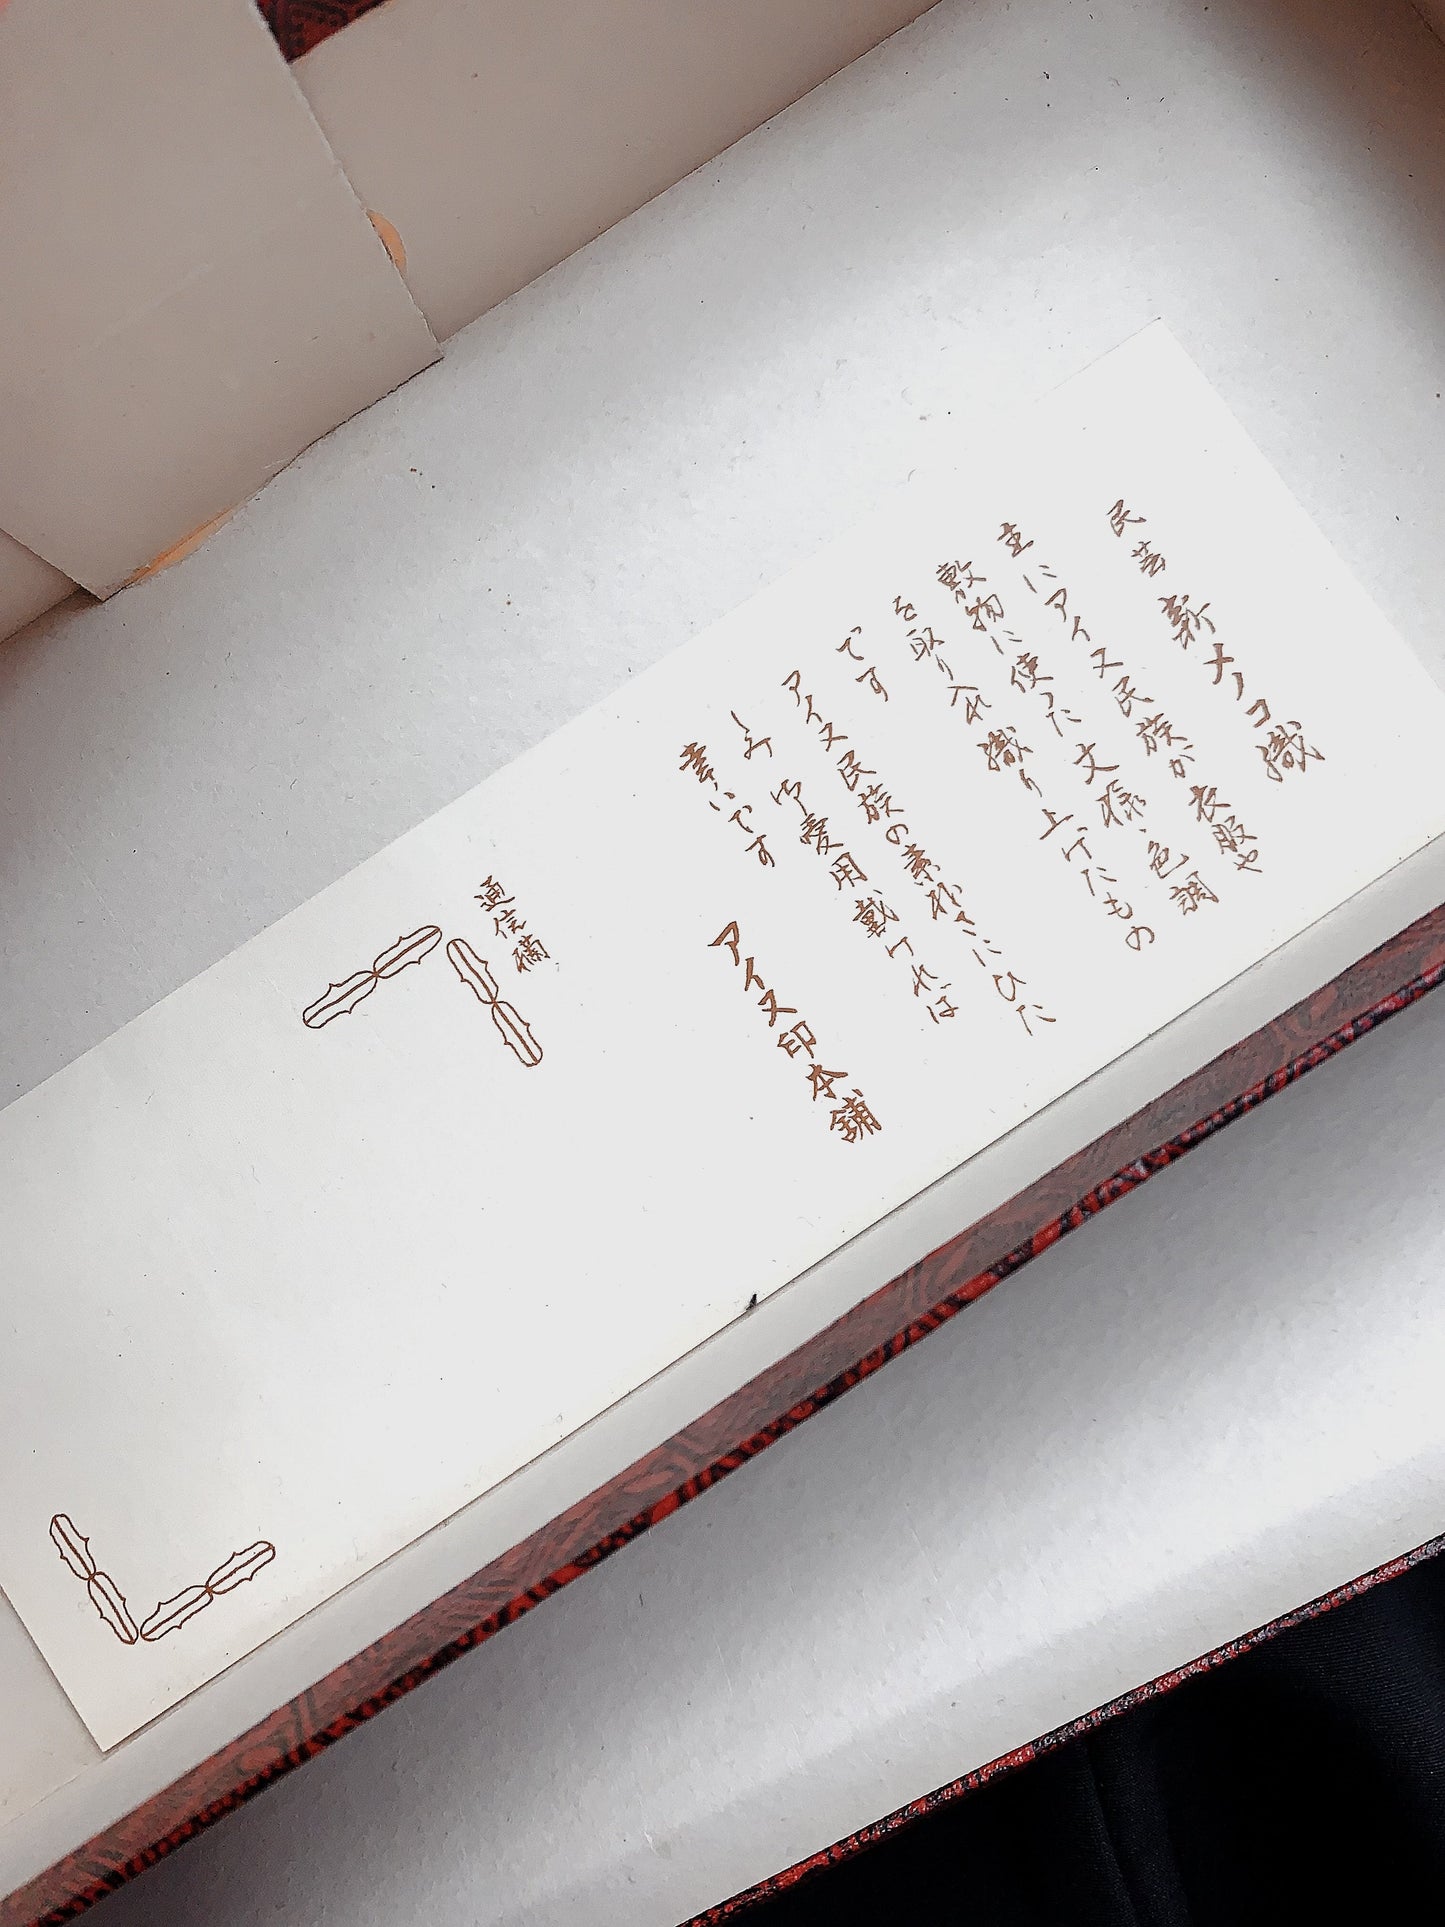 民芸 新ナノコ織
主にアイヌ民族が衣服や
敷物に使った文様、色調
を取り入れ織り上げたもの
です
アイヌ民族の素朴さにひた
しみ御愛用戴ければ
幸いです
アイヌ印本舗
通信欄